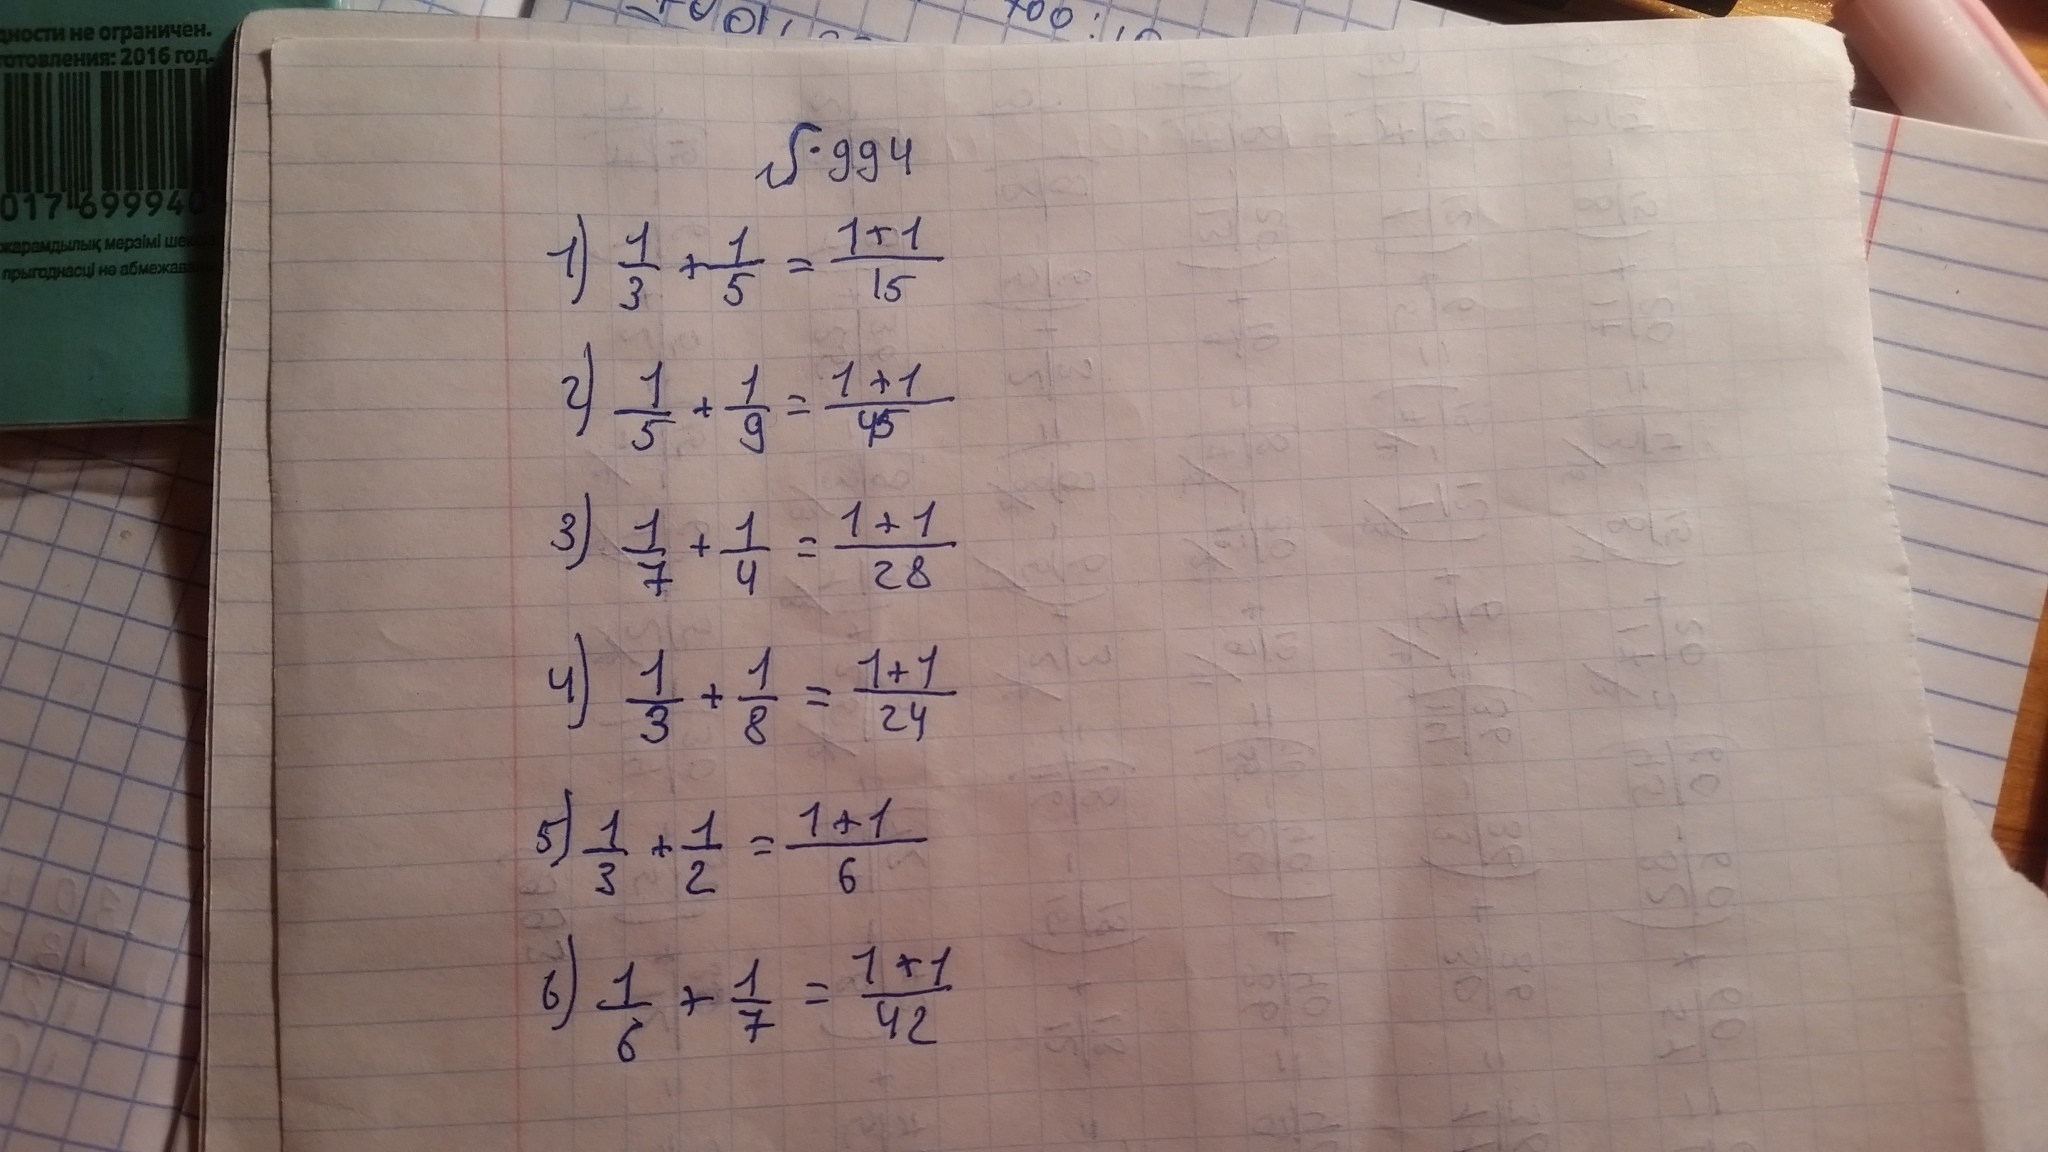 дности не ограничен.
готовления: 2016 год.
017 699940
жарамдылық мерзімі шек
прыгоднасці не абмежава
700:10
№ 994
1) 1/3 + 1/5 = 1+1/15
2) 1/5 + 1/9 = 1+1/45
3) 1/7 + 1/4 = 1+1/28
4) 1/3 + 1/8 = 1+1/24
5) 1/3 + 1/2 = 1+1/6
6) 1/6 + 1/7 = 1+1/42